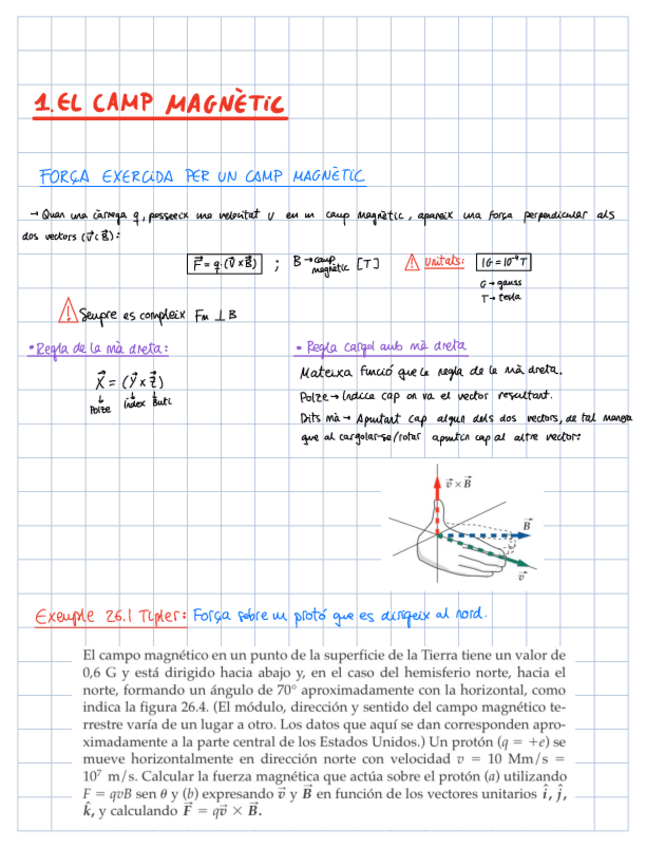 1. EL CAMP MAGNÈTIC
FORÇA EXERCIDA PER UN CAMP MAGNÈTIC
→ Quan una càrrega q, posseeix una velocitat v en un camp magnètic, apareix una força perpendicular als
dos vectors (v⃗ i B⃗):
F⃗ = q·(v⃗ x B⃗) ; B → camp magnètic [T] ⚠ Unitats: 1G = 10⁻⁴ T
G → gauss
T → tesla
⚠ Sempre es compleix Fm ⊥ B
• Regla de la mà dreta:
X⃗ = (Y⃗ x Z⃗)
Polze Índex
• Regla cargol amb mà dreta
Mateixa funció que la regla de la mà dreta.
Polze → Indica cap on va el vector resultant.
Dits mà → Apuntant cap algun dels dos vectors, de tal manera
que al cargolar-se/rotar apuntin cap al altre vector:
v⃗ × B⃗
B⃗
v⃗
Exemple 26.1 Tipler: Força sobre un protó que es dirigeix al nord.
El campo magnético en un punto de la superficie de la Tierra tiene un valor de
0,6 G y está dirigido hacia abajo y, en el caso del hemisferio norte, hacia el
norte, formando un ángulo de 70° aproximadamente con la horizontal, como
indica la figura 26.4. (El módulo, dirección y sentido del campo magnético te-
rrestre varía de un lugar a otro. Los datos que aquí se dan corresponden apro-
ximadamente a la parte central de los Estados Unidos.) Un protón (q = +e) se
mueve horizontalmente en dirección norte con velocidad v = 10 Mm/s =
10⁷ m/s. Calcular la fuerza magnética que actúa sobre el protón (a) utilizando
F = qvB sen θ y (b) expresando v⃗ y B⃗ en función de los vectores unitarios î, ĵ,
k̂, y calculando F⃗ = qv⃗ × B⃗.